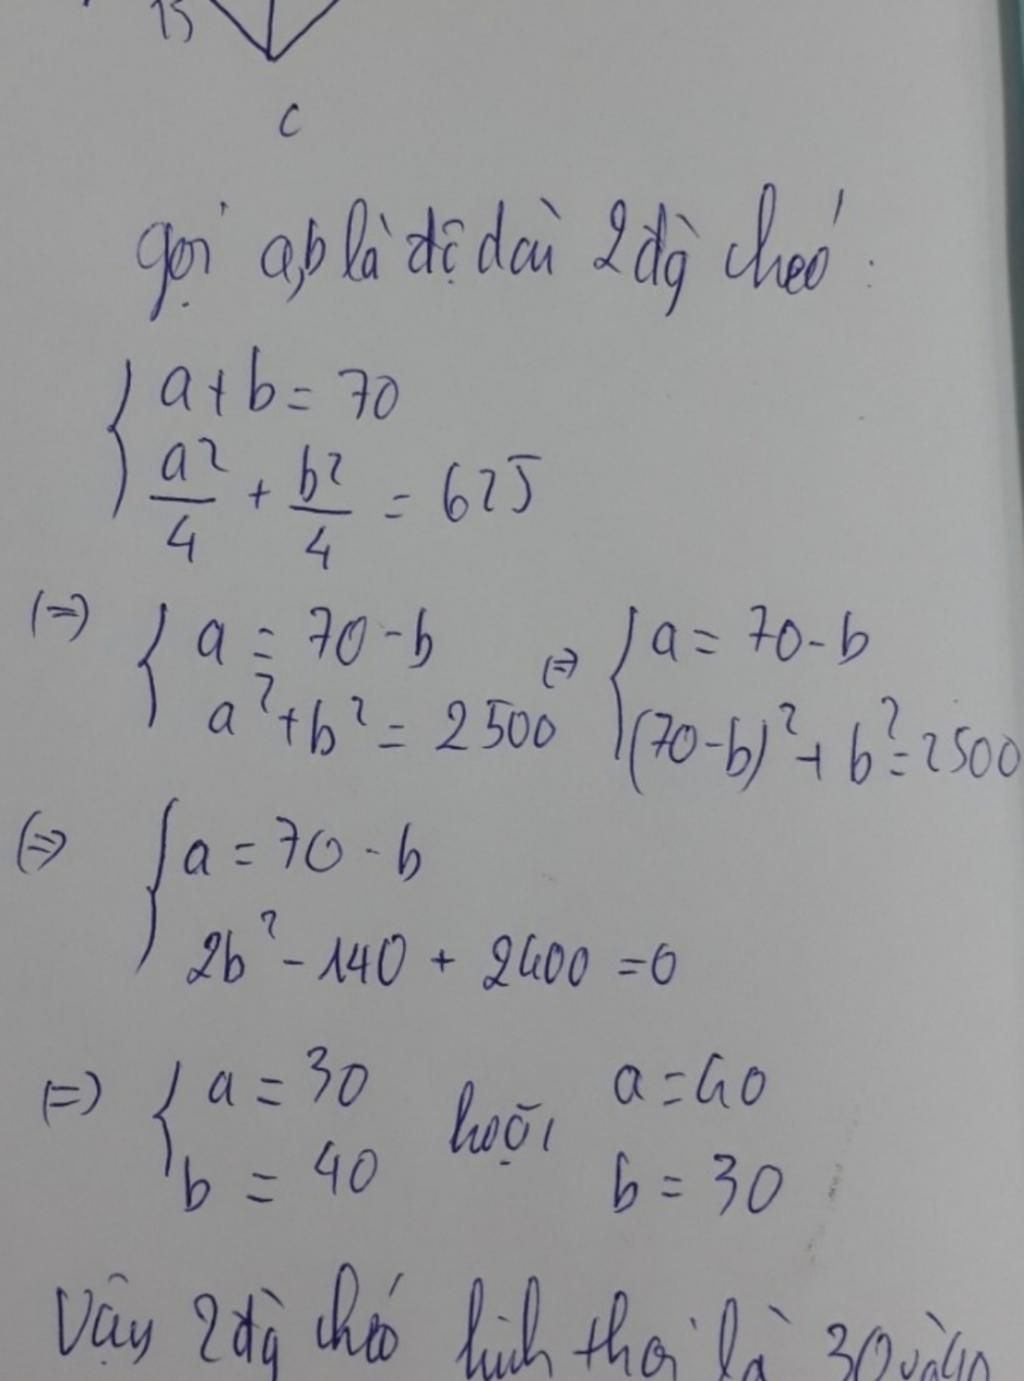 15
C
gọi a,b là độ dài 2 đg chéo :
a + b = 70
a²/4 + b²/4 = 625
(=) a = 70 - b (=) a = 70 - b
a² + b² = 2500 (70 - b)² + b² = 2500
(=) a = 70 - b
2b² - 140 + 2400 = 0
(=) a = 30 hoặc a = 40
b = 40 b = 30
Vậy 2 đg chéo hình thoi là 30 và 40